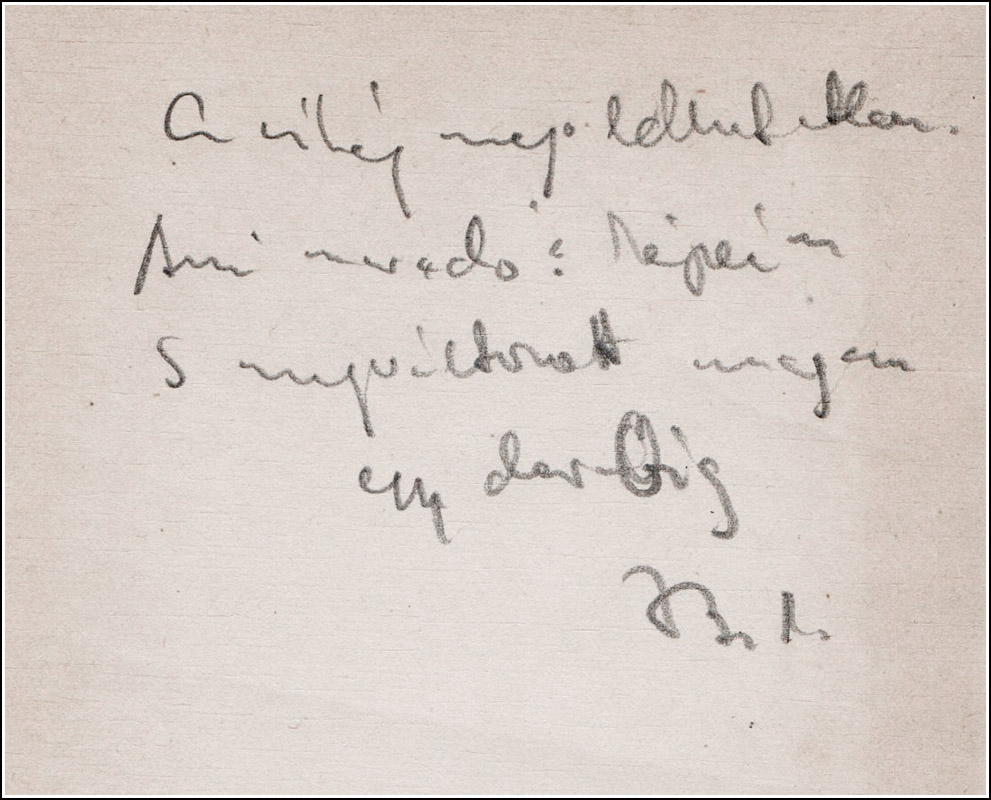 A világ megoldhatatlan.
Ami maradó: képeim
S megváltozott magam
egy darabig